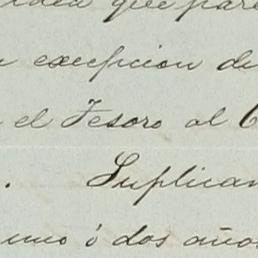 idea que pare
excepcion de
el Tesoro al C
. Suplican
uno ó dos años